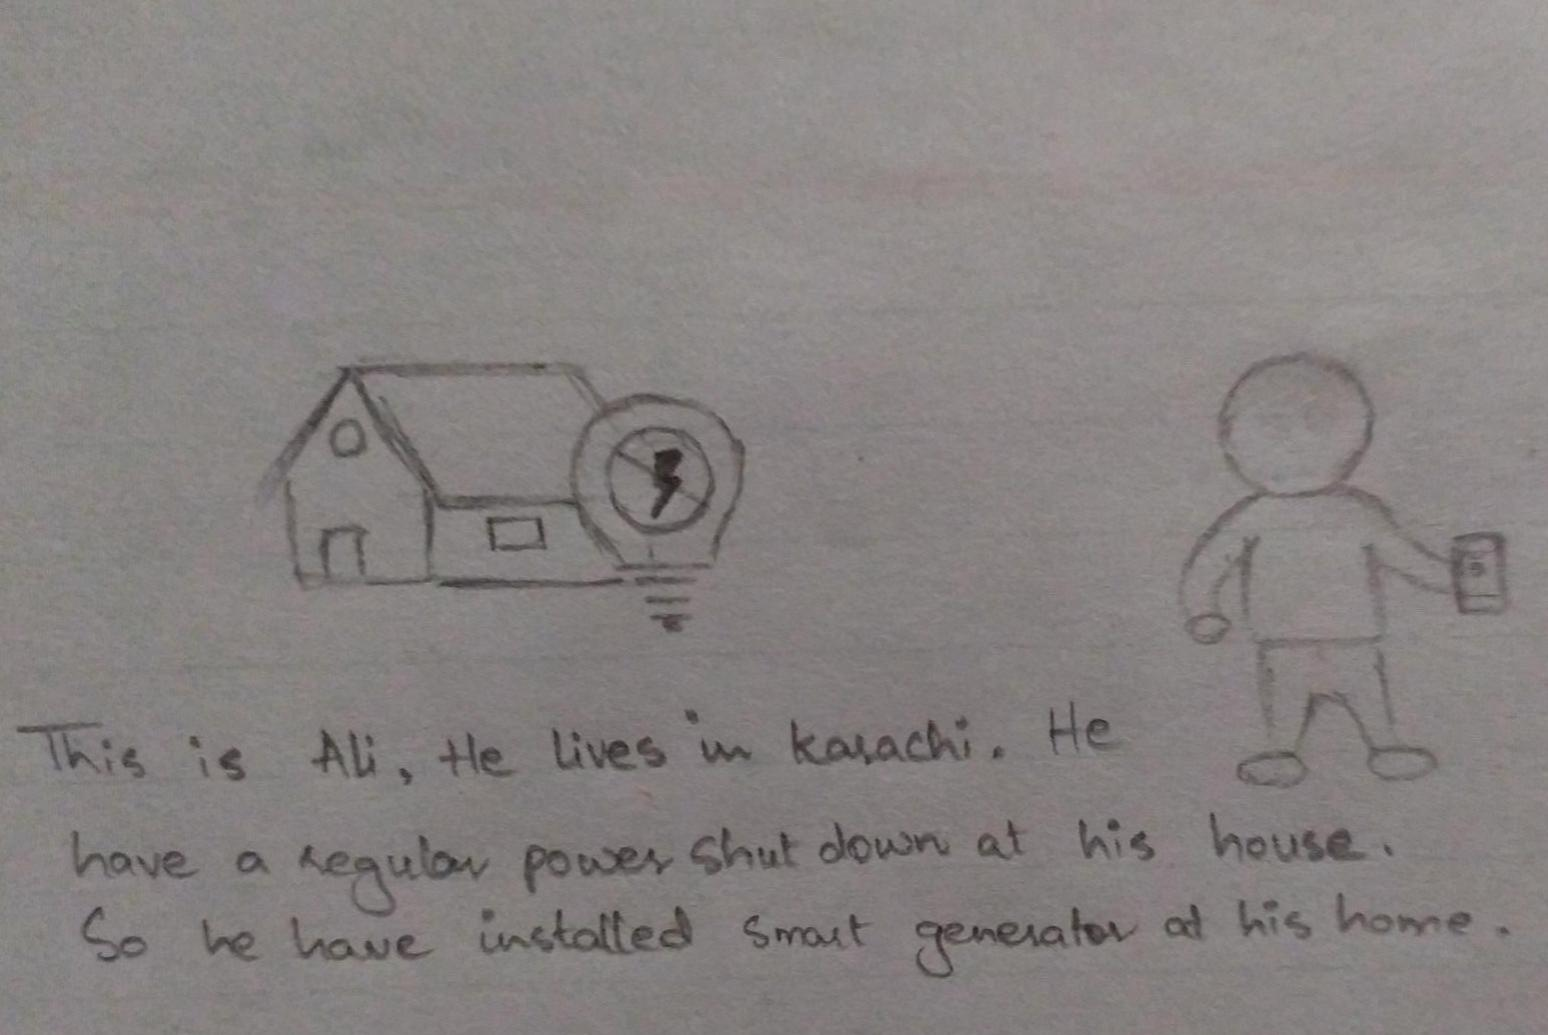 This is Ali, He lives in karachi. He
have a regular power shut down at his house.
So he have installed smart generator at his home.